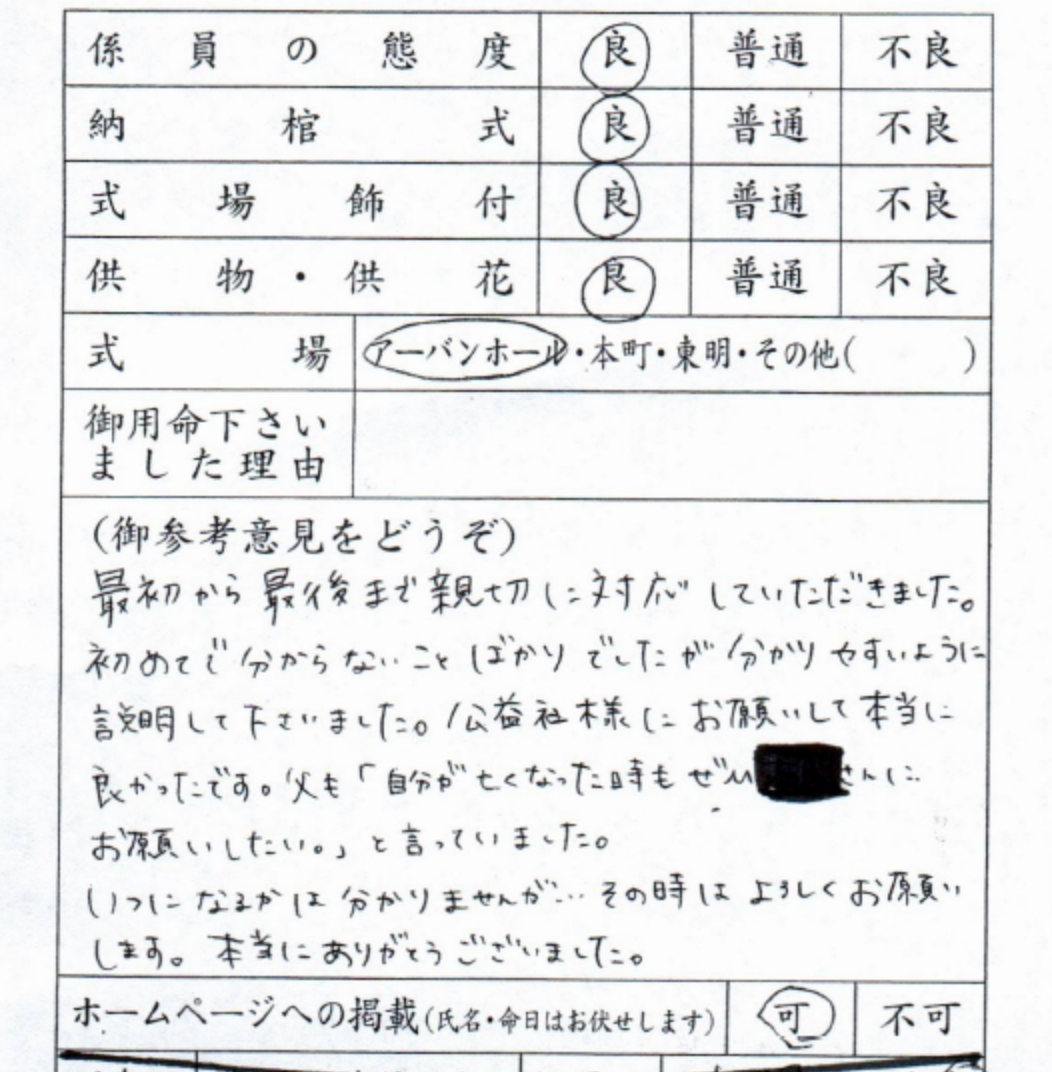 係員の態度 良 普通 不良
納棺式 良 普通 不良
式場飾付 良 普通 不良
供物・供花 良 普通 不良
式場 アーバンホール・本町・東明・その他( )
御用命下さい
ました理由
(御参考意見をどうぞ)
最初から最後まで親切に対応していただきました。
初めてで分からないことばかりでしたが分かりやすいように
説明して下さいました。公益社様にお願いして本当に
良かったです。父も「自分が亡くなった時もぜひ さんに
お願いしたい。」と言っていました。
いつになるかは分かりませんが…その時はよろしくお願い
します。本当にありがとうございました。
ホームページへの掲載(氏名・命日はお伏せします) 可 不可